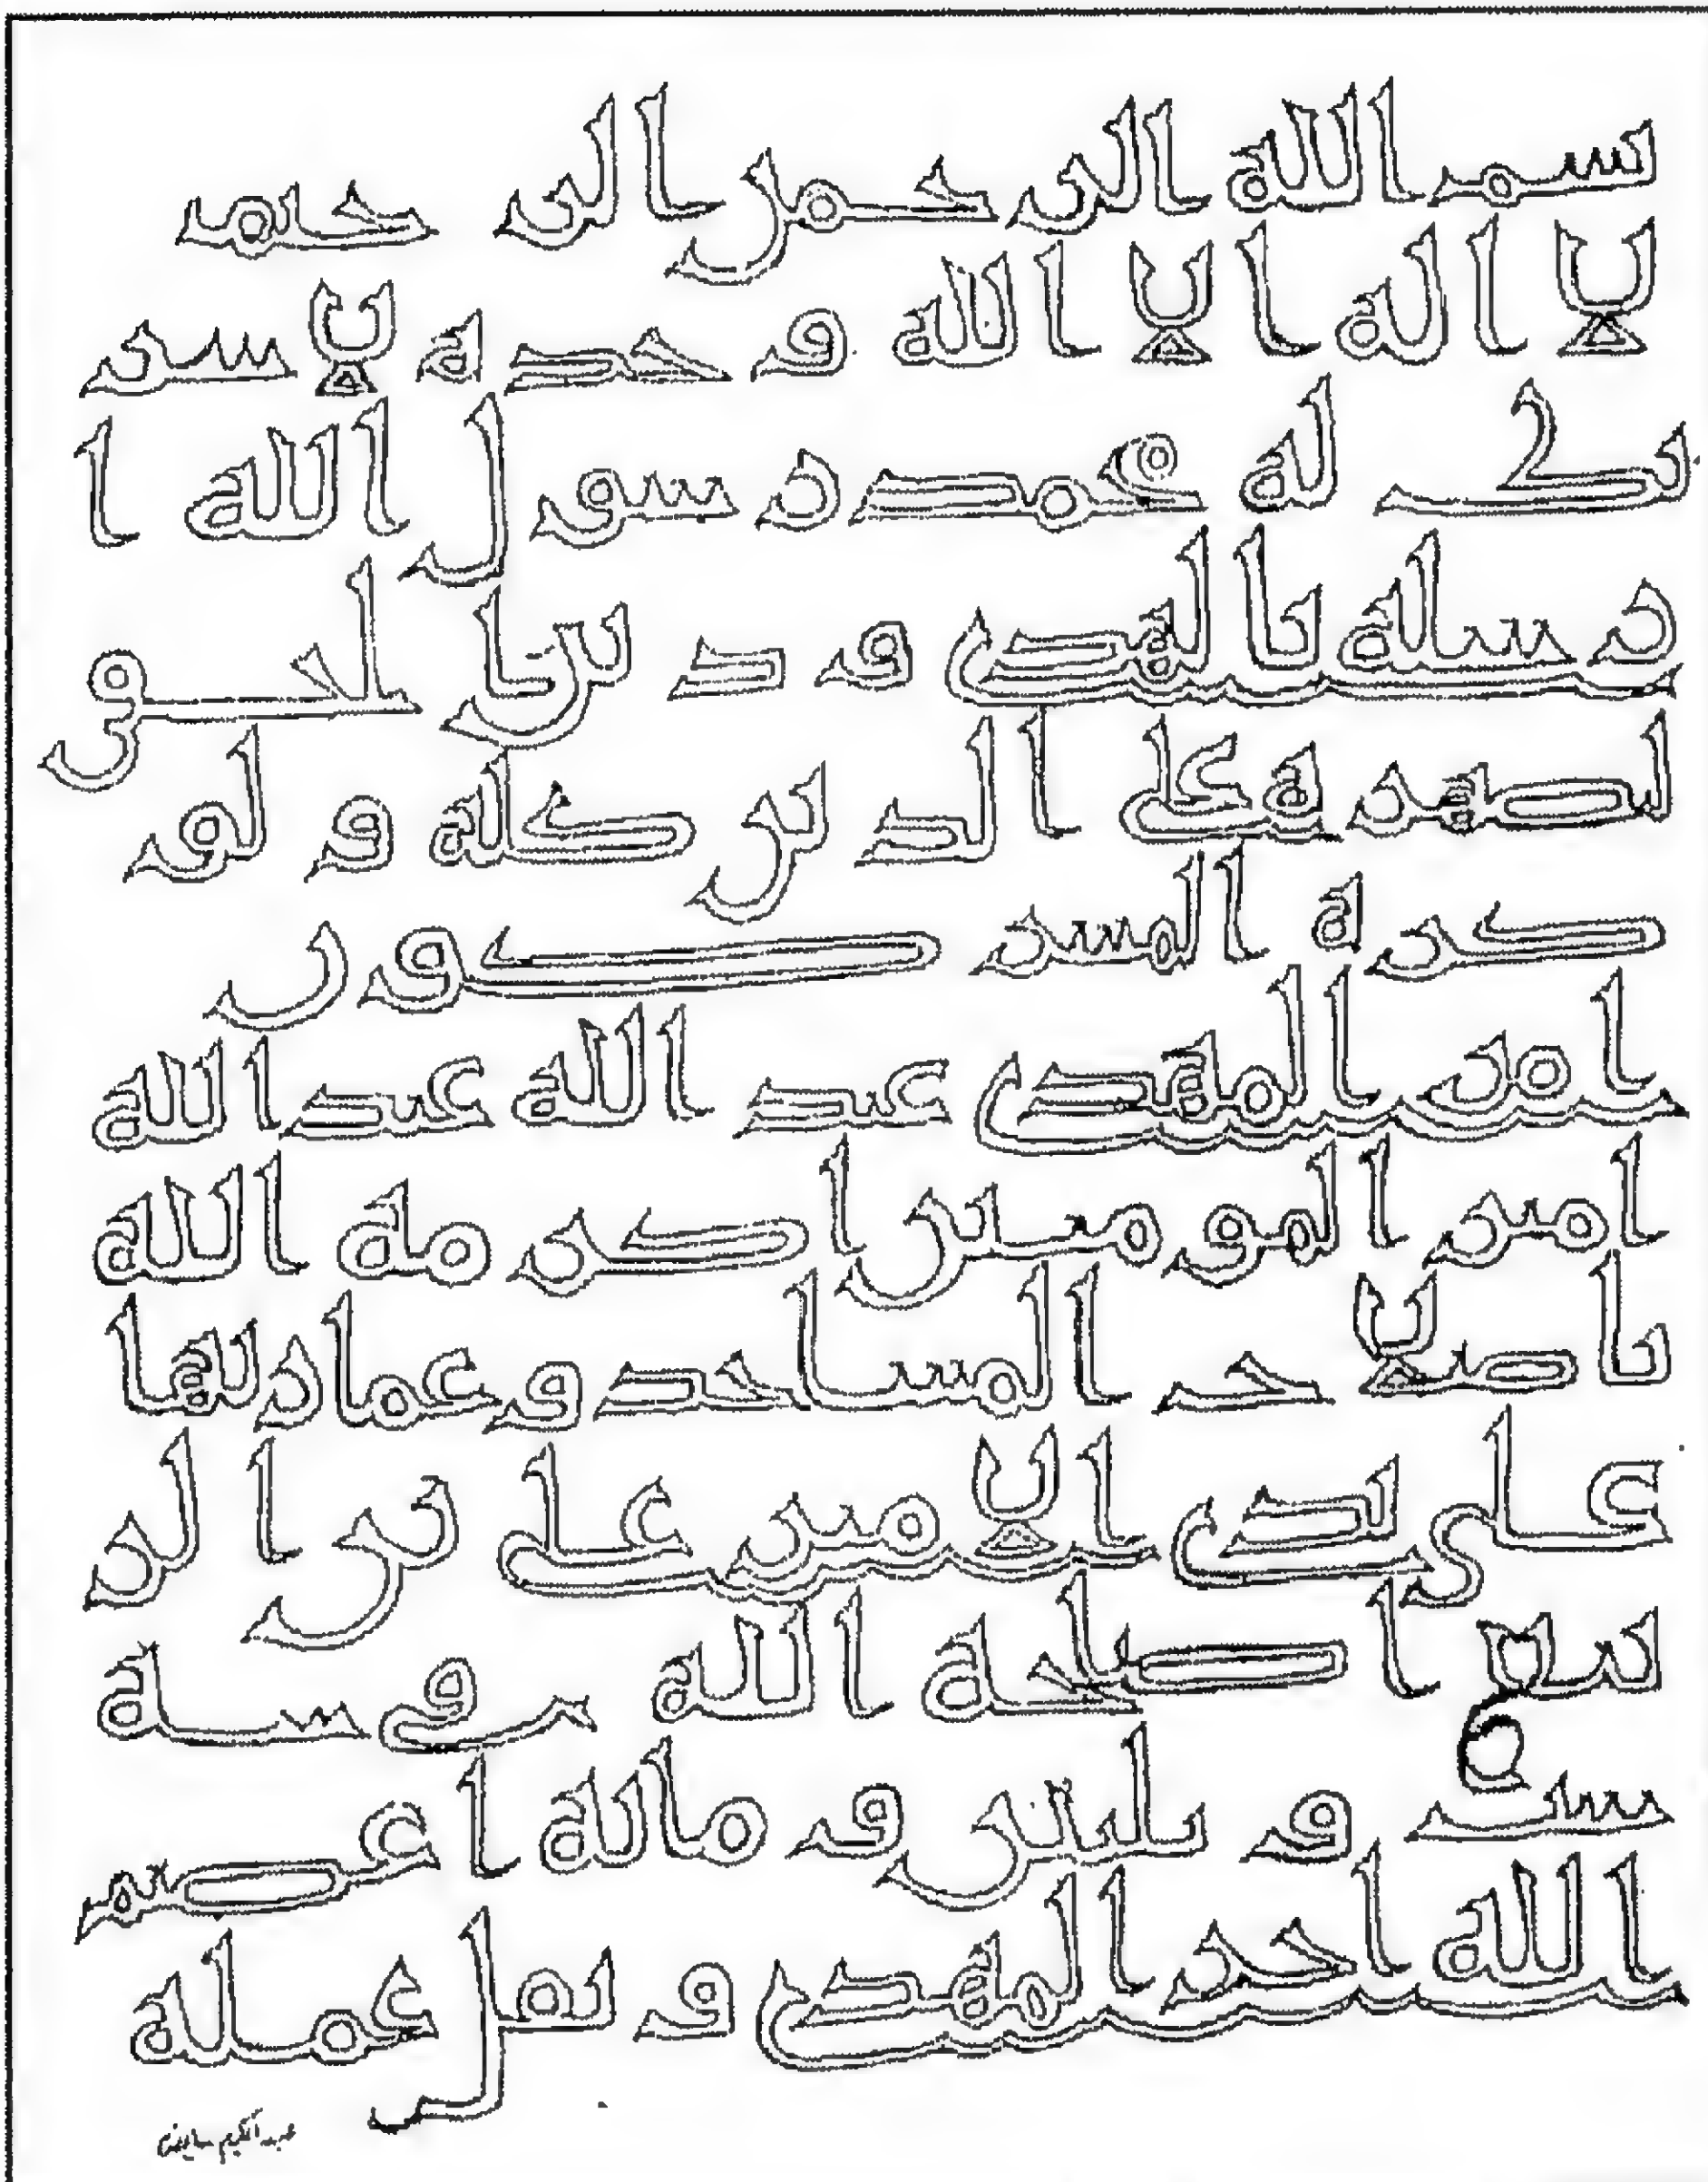 بسم الله الرحمن الرحيم
لا اله الا الله وحده لا شر
يك له محمد رسول الله ا
رسله بالهدى ودين الحق
ليظهره على الدين كله ولو
كره المشركون
امر المهدى عبد الله عبد الله
امير المومنين اكرمه الله
باصلاح المساجد وعمارتها
على يدى الامير على بن الر
بيع اصلحه الله فى سنة
ست وثلثين ومائة اعظم
الله اجر المهدى وتقبل عمله